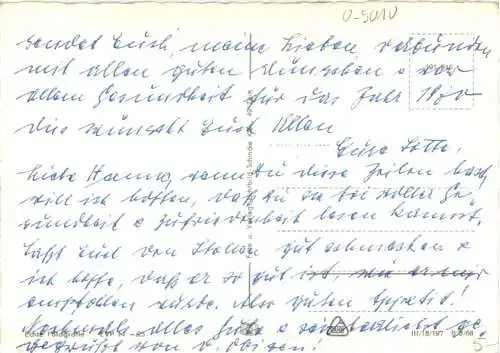 0-5010
sendet Euch, meine Lieben verbunden
mit allen guten Wünschen & vor
allem Gesundheit für das Jahr 1970
Dies wünscht Euch Allen
Eure Lotte.
Liebe Hanna, wenn Du diese Zeilen
will ich hoffen, daß Du sie bei voller Ge-
sundheit & Zufriedenheit lesen kannst.
Laßt Euch den Stollen gut schmecken &
ich hoffe, daß er so gut ist, wie er mir
empfohlen wurde. Also guten Appetit!
Nochmals alles Gute & sei herzlichst ge-
gegrüßt von
III/18/197